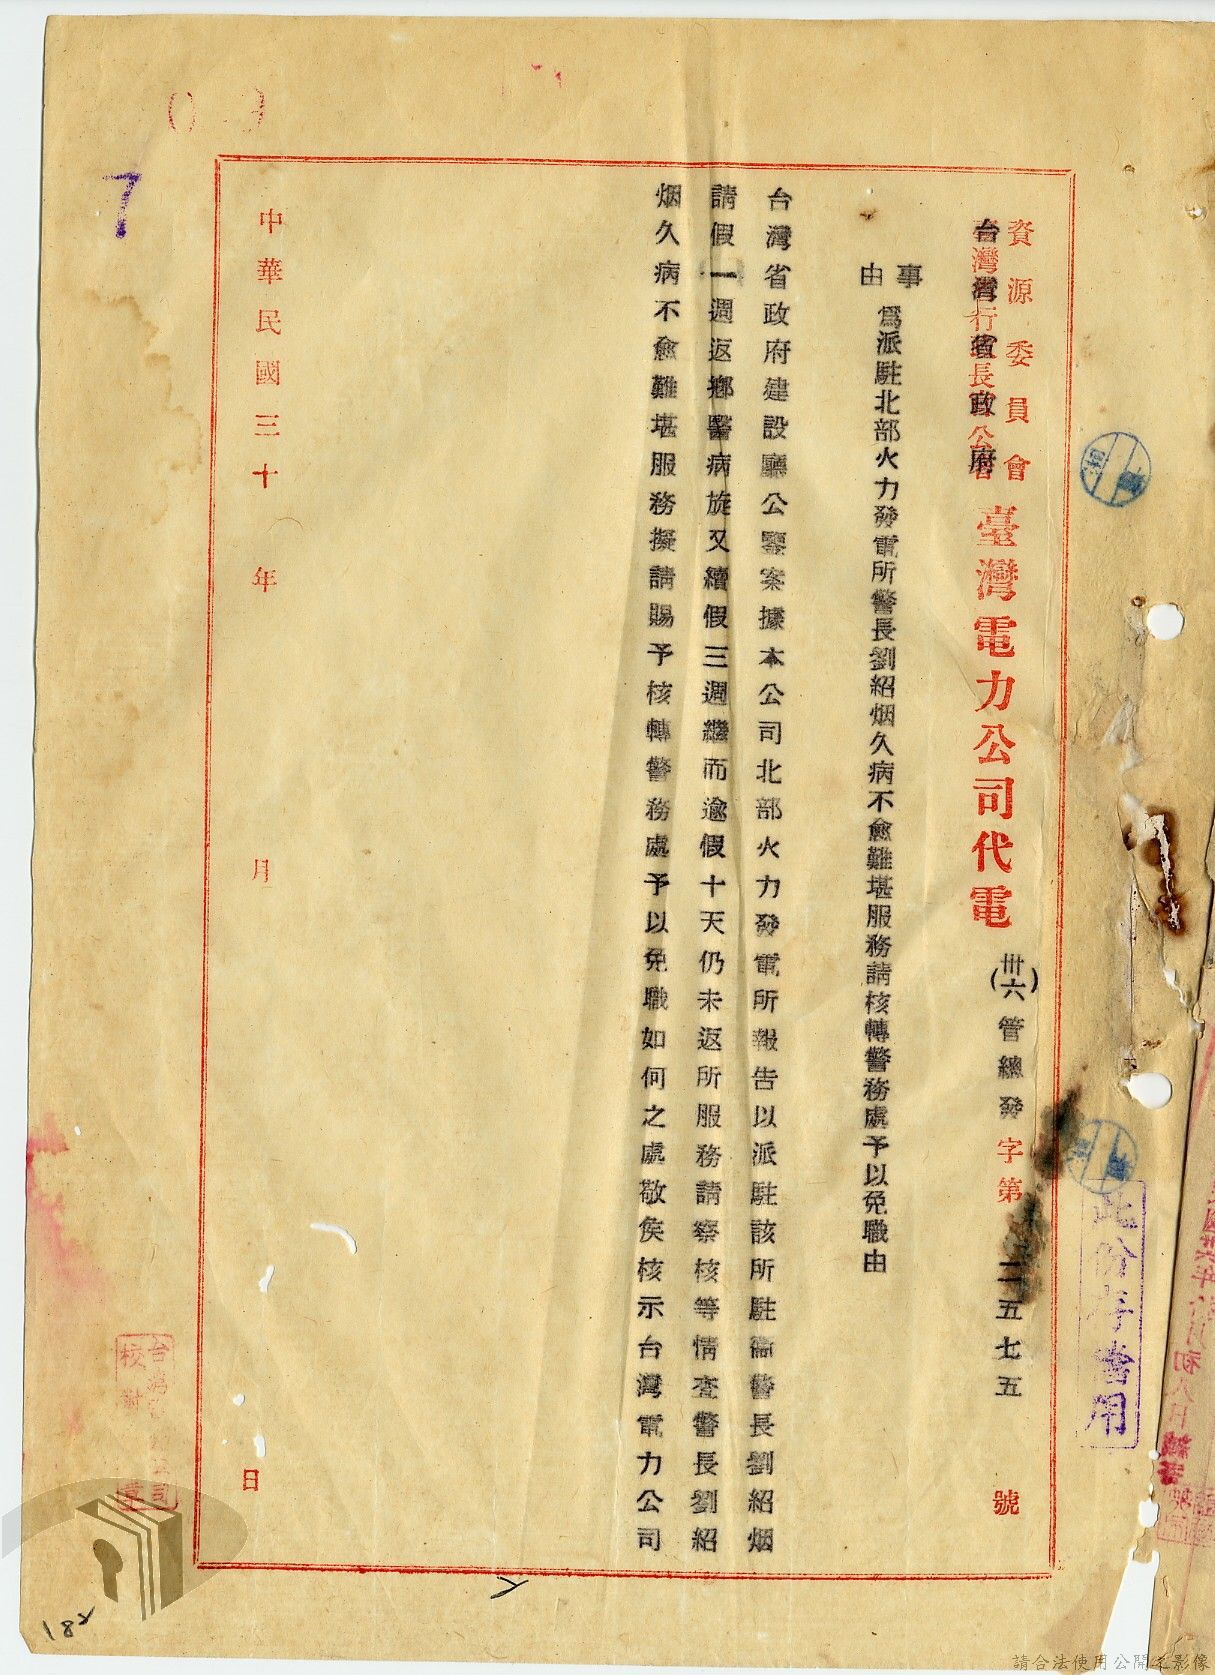 資源委員會
台灣省政府
臺灣電力公司代電
(卅六)管總發字第二五七五號
事由
為派駐北部火力發電所警長劉紹烟久病不愈難堪服務請核轉警務處予以免職由
台灣省政府建設廳公鑒案據本公司北部火力發電所報告以派駐該所駐衞警長劉紹烟
請假一週返鄉醫病旋又續假三週繼而逾假十天仍未返所服務請察核等情查警長劉紹
烟久病不愈難堪服務擬請賜予核轉警務處予以免職如何之處敬俟核示台灣電力公司
中華民國三十 年 月 日
此份存當用
7
校對
182
請合法使用公開之影像